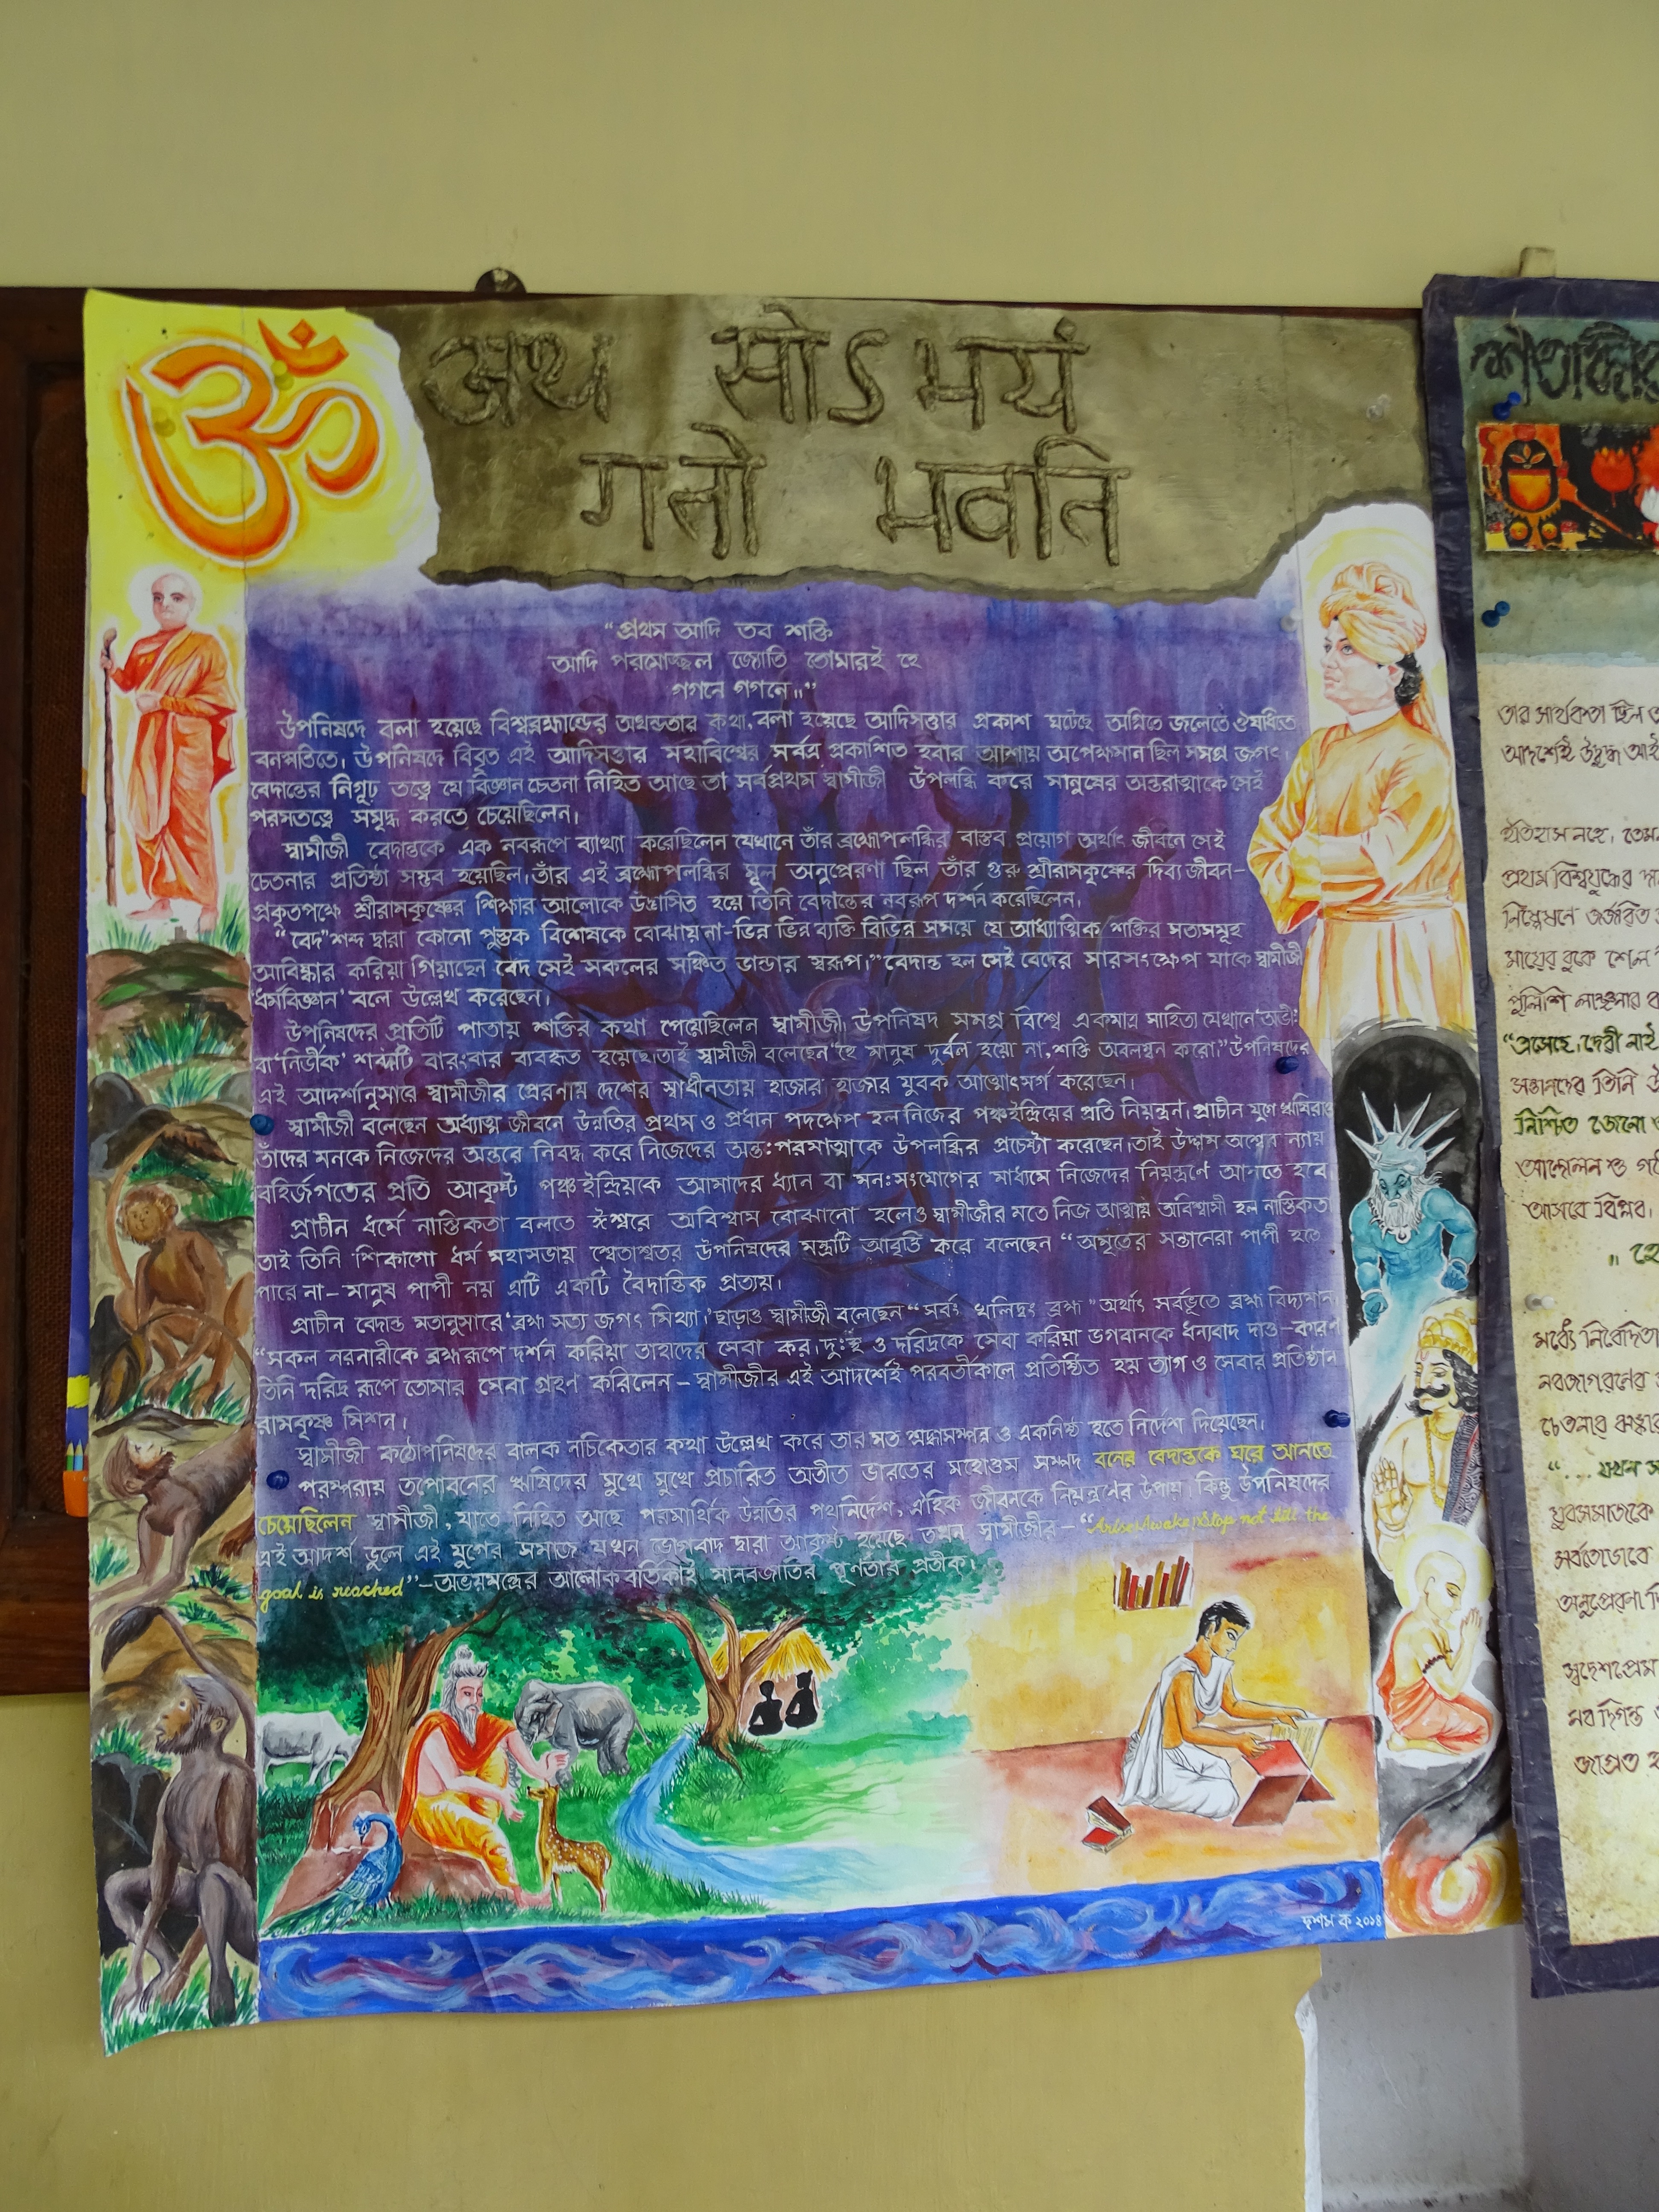 ॐ
अथ सोऽभयं
गतो भवति
"প্রথম আদি তব শক্তি
আদি পরমোজ্জ্বল জ্যোতি তোমারই হে
গগনে গগনে।।"
উপনিষদে বলা হয়েছে বিশ্বব্রহ্মান্ডের অখন্ডতার কথা, বলা হয়েছে আদিসত্তার প্রকাশ ঘটেছে অগ্নিতে জলেতে ঔষধিতে
বনস্পতিতে। উপনিষদে বিবৃত এই আদিসত্তার মহাবিশ্বের সর্বত্র প্রকাশিত হবার আশায় অপেক্ষমান ছিল সমগ্র জগৎ।
বেদান্তের নিগূঢ় তত্ত্বে যে বিজ্ঞান চেতনা নিহিত আছে তা সর্বপ্রথম স্বামীজী উপলব্ধি করে মানুষের অন্তরাত্মাকে সেই
পরমতত্ত্বে সমৃদ্ধ করতে চেয়েছিলেন।
স্বামীজী বেদান্তকে এক নবরূপে ব্যাখ্যা করেছিলেন যেখানে তাঁর ব্রহ্মোপলব্ধির বাস্তব প্রয়োগ অর্থাৎ জীবনে সেই
চেতনার প্রতিষ্ঠা সম্ভব হয়েছিল। তাঁর এই ব্রহ্মোপলব্ধির মূল অনুপ্রেরণা ছিল তাঁর গুরু শ্রীরামকৃষ্ণের দিব্য জীবন-
প্রকৃতপক্ষে শ্রীরামকৃষ্ণের শিক্ষার আলোকে উদ্ভাসিত হয়ে তিনি বেদান্তের নবরূপ দর্শন করেছিলেন।
"বেদ" শব্দ দ্বারা কোনো পুস্তক বিশেষকে বোঝায় না-ভিন্ন ভিন্ন ব্যক্তি বিভিন্ন সময়ে যে আধ্যাত্মিক শক্তির সত্যসমূহ
আবিষ্কার করিয়া গিয়াছেন বেদ সেই সকলের সঞ্চিত ভান্ডার স্বরূপ।" বেদান্ত হল সেই বেদের সারসংক্ষেপ যাকে স্বামীজী
'ধর্মবিজ্ঞান' বলে উল্লেখ করেছেন।
উপনিষদের প্রতিটি পাতায় শক্তির কথা পেয়েছিলেন স্বামীজী। উপনিষদ সমগ্র বিশ্বে একমাত্র সাহিত্য যেখানে 'অভীঃ'
বা 'নির্ভীক' শব্দটি বারংবার ব্যবহৃত হয়েছে। তাই স্বামীজী বলেছেন "হে মানুষ দুর্বল হয়ো না, শক্তি অবলম্বন করো।" উপনিষদের
এই আদর্শানুসারে স্বামীজীর প্রেরণায় দেশের স্বাধীনতায় হাজার হাজার যুবক আত্মোৎসর্গ করেছেন।
স্বামীজী বলেছেন অধ্যাত্ম জীবনে উন্নতির প্রথম ও প্রধান পদক্ষেপ হল নিজের পঞ্চইন্দ্রিয়ের প্রতি নিয়ন্ত্রন। প্রাচীন যুগে ঋষিরাও
তাঁদের মনকে নিজেদের অন্তরে নিবদ্ধ করে নিজেদের অন্তঃপরমাত্মাকে উপলব্ধির প্রচেষ্টা করেছেন। তাই উদ্দাম অশ্বের ন্যায়
বহির্জগতের প্রতি আকৃষ্ট পঞ্চ ইন্দ্রিয়কে আমাদের ধ্যান বা মনঃসংযোগের মাধ্যমে নিজেদের নিয়ন্ত্রণে আনতে হবে
প্রাচীন ধর্মে নাস্তিকতা বলতে ঈশ্বরে অবিশ্বাস বোঝানো হলেও স্বামীজীর মতে নিজ আত্মায় অবিশ্বাসী হল নাস্তিকতা
তাই তিনি শিকাগো ধর্ম মহাসভায় শ্বেতাশ্বতর উপনিষদের মন্ত্রটি আবৃত্তি করে বলেছেন "অমৃতের সন্তানেরা পাপী হতে
পারে না- মানুষ পাপী নয় এটি একটি বৈদান্তিক প্রত্যয়।
প্রাচীন বেদান্ত মতানুসারে 'ব্রহ্ম সত্য জগৎ মিথ্যা।' ছাড়াও স্বামীজী বলেছেন "সর্বং খলিদ্বং ব্রহ্ম" অর্থাৎ সর্বভূতে ব্রহ্ম বিদ্যমান।
"সকল নরনারীকে ব্রহ্মরূপে দর্শন করিয়া তাহাদের সেবা কর। দুঃস্থ ও দরিদ্রকে সেবা করিয়া ভগবানকে ধন্যবাদ দাও-কারণ
তিনি দরিদ্র রূপে তোমার সেবা গ্রহণ করিলেন - স্বামীজীর এই আদর্শেই পরবর্তীকালে প্রতিষ্ঠিত হয় ত্যাগ ও সেবার প্রতিষ্ঠান
রামকৃষ্ণ মিশন।
স্বামীজী কঠোপনিষদের বালক নচিকেতার কথা উল্লেখ করে তার মত শ্রদ্ধাসম্পন্ন ও একনিষ্ঠ হতে নির্দেশ দিয়েছেন।
পরম্পরায় তপোবনের ঋষিদের মুখে মুখে প্রচারিত অতীত ভারতের মহোত্তম সম্পদ বনের বেদান্তকে ঘরে আনতে
চেয়েছিলেন স্বামীজী, যাতে নিহিত আছে পরমার্থিক উন্নতির পথনির্দেশ, ঐহিক জীবনকে নিয়ন্ত্রণের উপায়। কিন্তু উপনিষদের
এই আদর্শ ভুলে এই যুগের সমাজ যখন ভোগবাদ দ্বারা আকৃষ্ট হয়েছে তখন স্বামীজীর - "Arise! Awake! Stop not till the
goal is reached" - অভয়মন্ত্রের আলোকবর্তিকাই মানবজাতির পূর্ণতার প্রতীক।
ক ২০১৪
তার সার্থকতা ছিল
আদর্শেই উদ্বুদ্ধ
ইতিহাস নহে, তেমন
প্রথম বিশ্বযুদ্ধের
জর্জরিত
মায়ের বুকে শেল
পুলিশি লাঞ্ছনার
"এসেছে, দেরী নাই
সন্তানদের তিনি
নিশ্চিত জেনো
আন্দোলন ও
আসবে বিপ্লব।
মধ্যে নিবেদিতা
নবজাগরণের
চেতনার
"... যখন
যুবসমাজকে
সর্বতোভাবে
স্বদেশপ্রেম
নব দিগন্ত
জাগ্রত